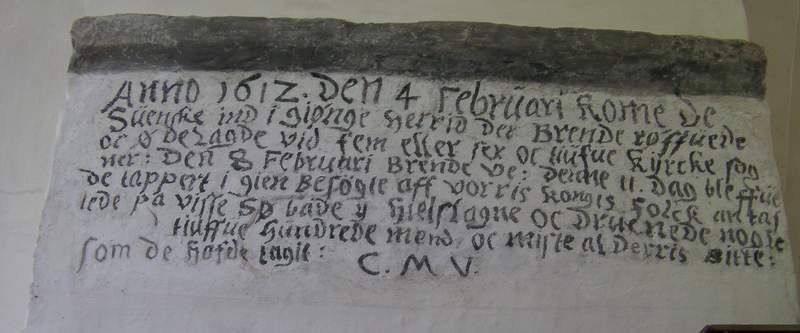 Anno 1612. Den 4 Februari kome de
Suenske ind i giønge Herrid der Brende røffuede
oc ødelagde vid fem eller sex oc tiufue Kyrcke sog
ner: Den 8 Februari Brende Ve: Denne 11. Dag bleffue
de tappert i gien Besøgte aff vorris kongis Folck antas
tede på visse Sø både y hielslagne oc Druknede nogle
tiuffue Hundrede mend oc miste al Derris Bitte:
som de Hafde tagit:
C. M V.